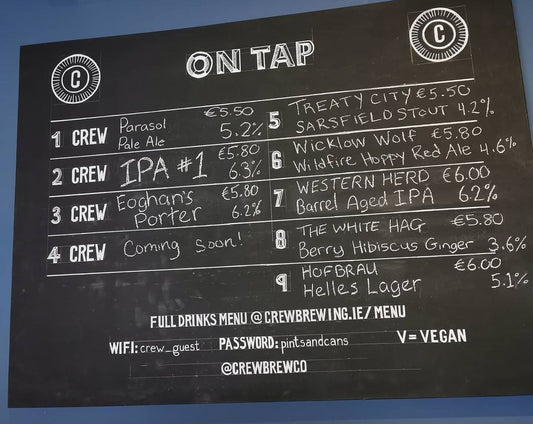 C
C
ON TAP
1 CREW Parasol €5.50
Pale Ale 5.2%
2 CREW IPA #1 €5.80
6.3%
3 CREW Eoghan's €5.80
Porter 6.2%
4 CREW Coming Soon!
5 TREATY CITY €5.50
SARSFIELD STOUT 4.2%
6 Wicklow Wolf €5.80
Wildfire Hoppy Red Ale 4.6%
7 WESTERN HERD €6.00
Barrel Aged IPA 6.2%
8 THE WHITE HAG €5.80
Berry Hibiscus Ginger 3.6%
9 HOFBRAU €6.00
Helles Lager 5.1%
FULL DRINKS MENU @ CREWBREWING.IE/MENU
WIFI: crew_guest PASSWORD: pintsandcans V = VEGAN
@CREWBREWCO